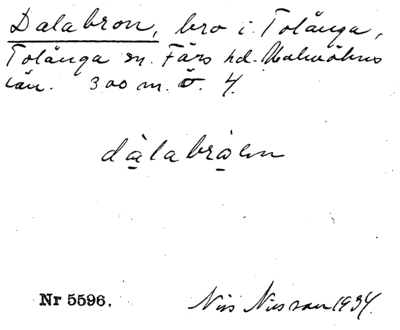 Dalabron, bro i Tolånga,
Tolånga sn. Färs hd. Malmöhus
län. 300 m. ö. 4.
dàlabròen
Nr 5596.
Nils Nilsson 1934.